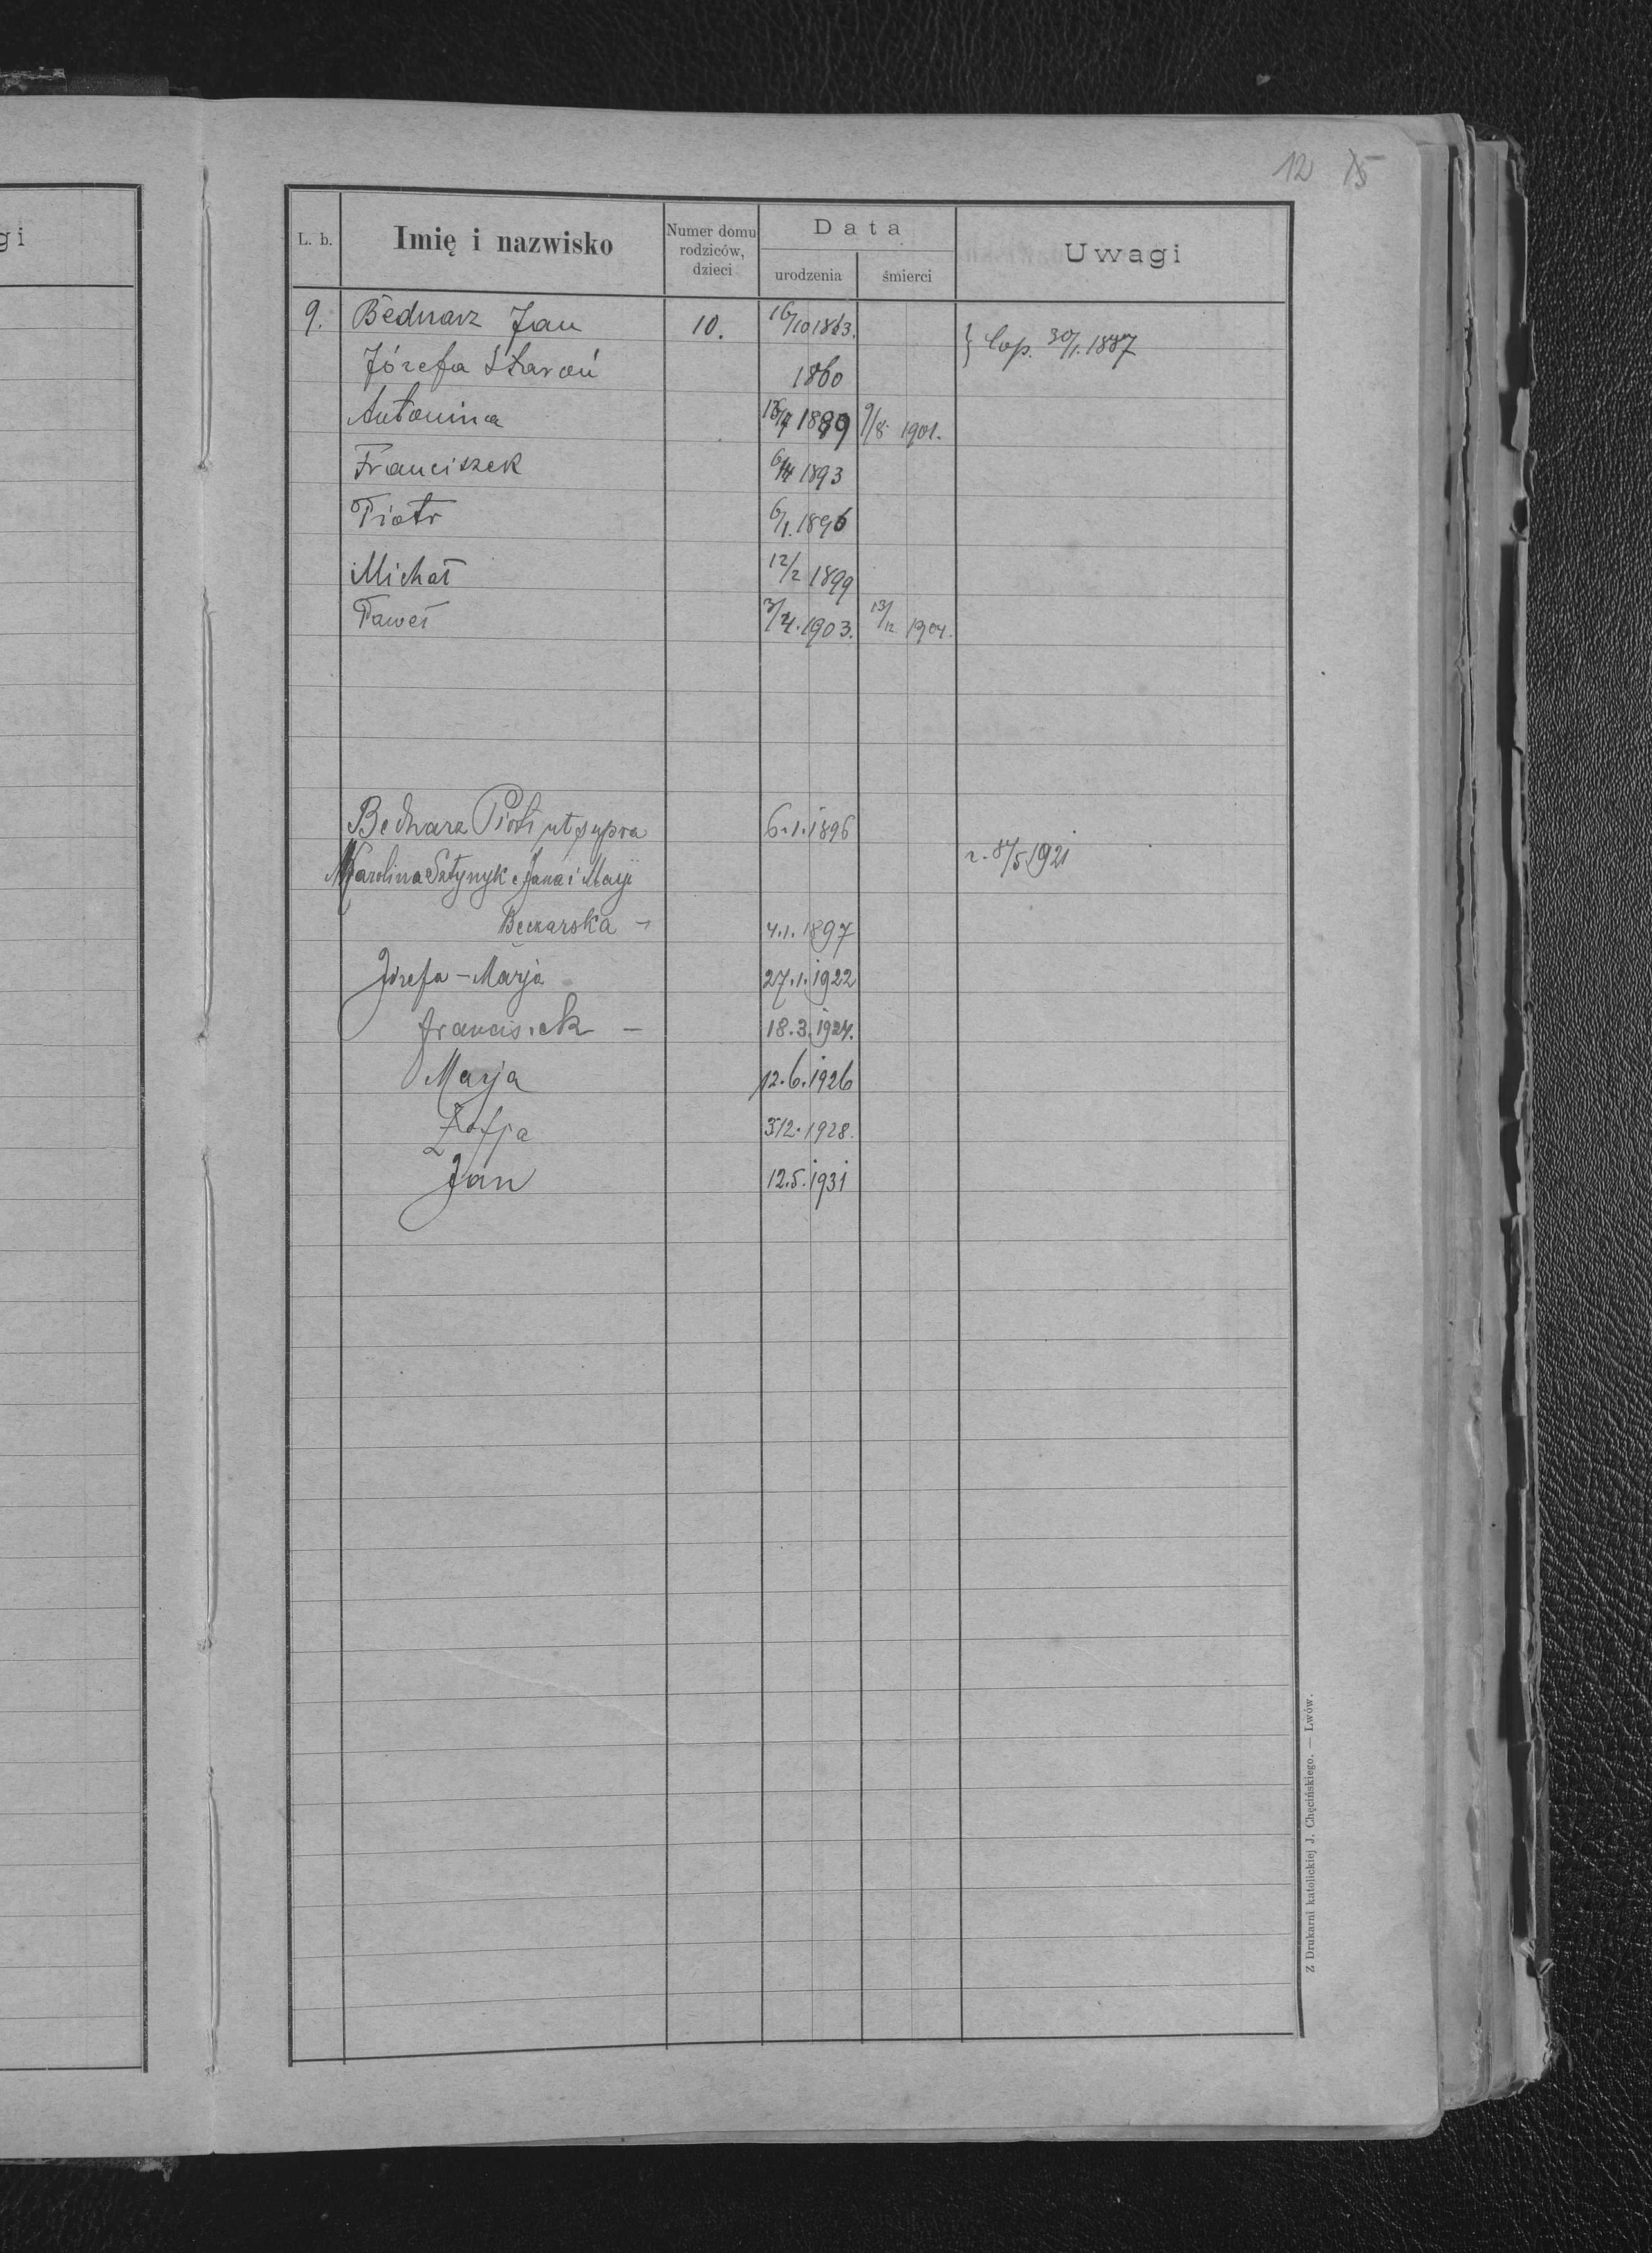 12 15
gi
L. b. Imię i nazwisko Numer domu rodziców, dzieci Data urodzenia śmierci Uwagi
9. Bednarz Jan 10. 16/10 1863. } Cop. 30/1. 1887
Józefa Staroń 1860
Antonina 1889 9/8. 1901.
Franciszek 1893
Piotr 6/1. 1896
Michał 12/2 1899
Paweł 3/4. 1903. 13/12 1904.
Bednarz Piotr ut supra 6.1.1896
Karolina Jana i Marji 1921
4.1.1897
Józefa - Marja 27.1.1922
Franciszek - 18.3.1924.
Marja 12.6.1926
Zofja 1928.
Jan 12.5.1931
Z Drukarni katolickiej J. Chęcińskiego. — Lwów.